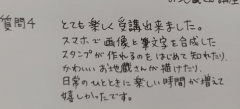 質問4
とても楽しく受講出来ました。
スマホで画像と筆文字を合成した
スタンプが作れるのをはじめて知れたり、
かわいいお地蔵さんが描けたり、
日常のひとときに楽しい時間が増えて
嬉しかったです。